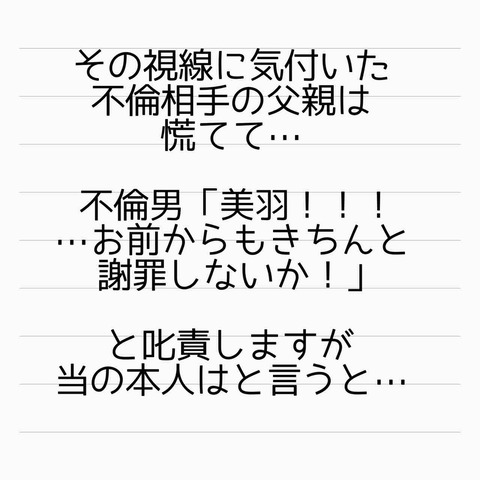 その視線に気付いた
不倫相手の父親は
慌てて…
不倫男「美羽！！！
…お前からもきちんと
謝罪しないか！」
と叱責しますが
当の本人はと言うと…